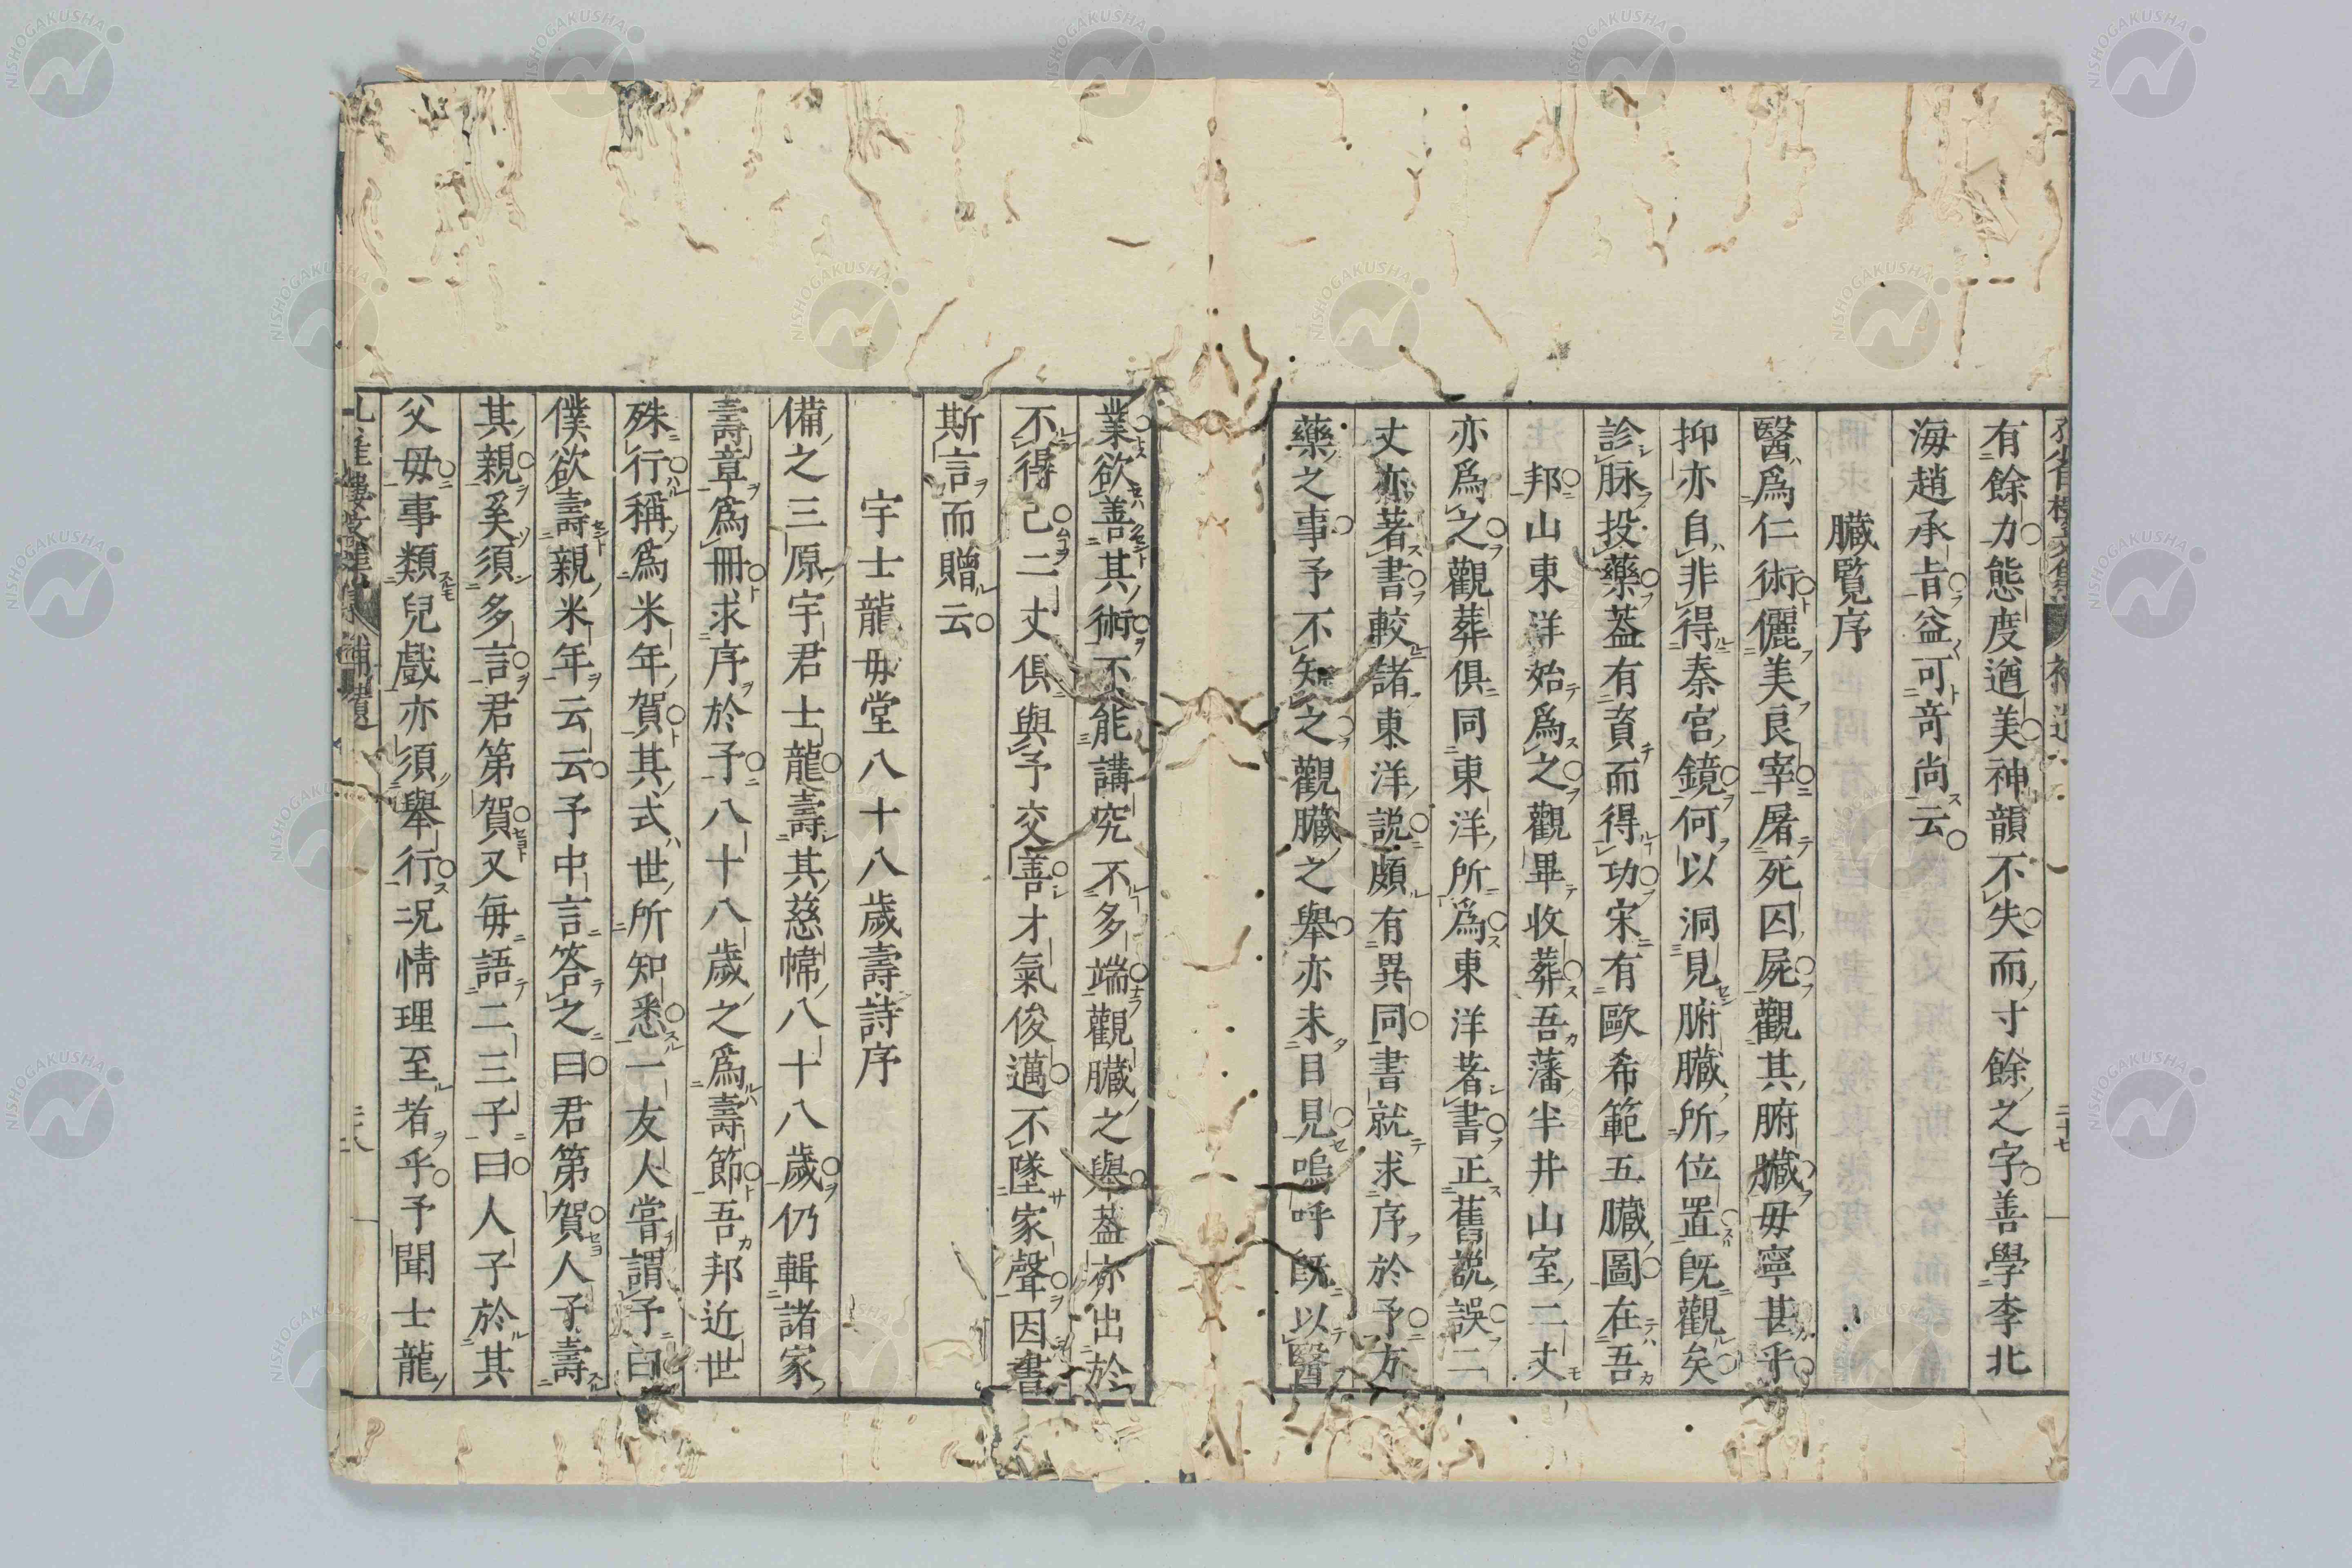 有餘力態度遒美神韻不失而寸餘之字善學李北
海趙承旨益可竒尚云
臟覧序
醫爲仁術儷美良宰屠死囚屍觀其腑臟毋寧甚乎
抑亦自非得秦宮鏡何以洞見腑臟所位置既觀矣
診脉投藥葢有資而得功宋有歐希範五臟圖在吾
邦山東洋始爲之觀畢收葬吾藩半井山室二丈
亦爲之觀葬俱同東洋所爲東洋著書正舊説誤二
丈亦著書較諸東洋説頗有異同書就求序於予方
藥之事予不知之觀臟之舉亦未目見嗚呼既以醫
業欲善其術不能講究不多端觀臟之舉葢亦出於
不得已二丈俱與予交善才氣俊邁不墜家聲因書
斯言而贈云
宇士龍毋堂八十八歲壽詩序
備之三原宇君士龍壽其慈幃八十八歲仍輯諸家
壽章爲冊求序於予八十八歲之爲壽節吾邦近世
殊行稱爲米年賀其式世所知悉一友人嘗謂予曰
僕欲壽親米年云云予中言答之曰君第賀人子壽
其親奚須多言君第賀又毎語二三子曰人子於其
父毋事類兒戲亦須舉行况情理至者乎予聞士龍